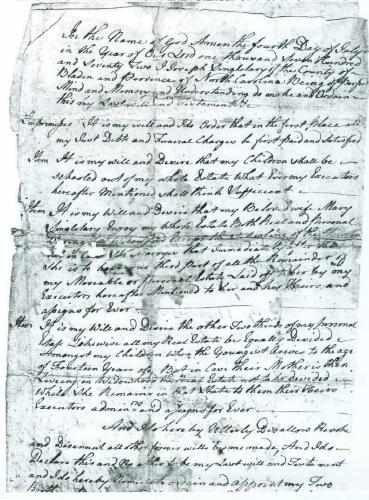 In the Name of God Amen the fourth Day of July
in the Year of Our Lord one thousand Seven Hundred
and Seventy Two I Joseph Singletary of the County of
Bladen and Province of North Carolina Being of Perfect
Mind and Memory and Understanding do make and Ordain
this my Last will and Testament &c
Imprimis It is my will and I do Order that in the first Place all
my Just Debts and Funeral Charges be first paid and Satisfied
Item It is my will and Desire that my Children shall be
schooled out of my whole Estate What Ever my Executors
hereafter Mentioned shall think Sufficient
Item It is my Will and Desire that my Beloved wife Mary
Singletary Enjoy my Whole Estate Both Real and Personal
During
in Case She Marryes that Immediately after
She is to have one third Part of all the Remainder of
my Moveable or Personal Estate Laid off to her by my
Executors hereafter Mentioned to her and her Heirs and
assigns for Ever
Item It is my Will and Desire the other Two thirds of my Personal
Likewise all my Real Estate be Equally Divided
Amongst my Children when the Youngest Arives to the age
of Fourteen Years of age But in Case their Mother is then
Liveing in Widowhood the Real Estate not to be devided
While She Remains in that State to them their Heirs
Executors admin and assigns for Ever
And I do hereby Utterly Disallow Revoke
and Disannul all other former wills by me made, And I do
Declare this and No other to be my Last will and Testament
and I do hereby Nominate ordain and appoint my Two